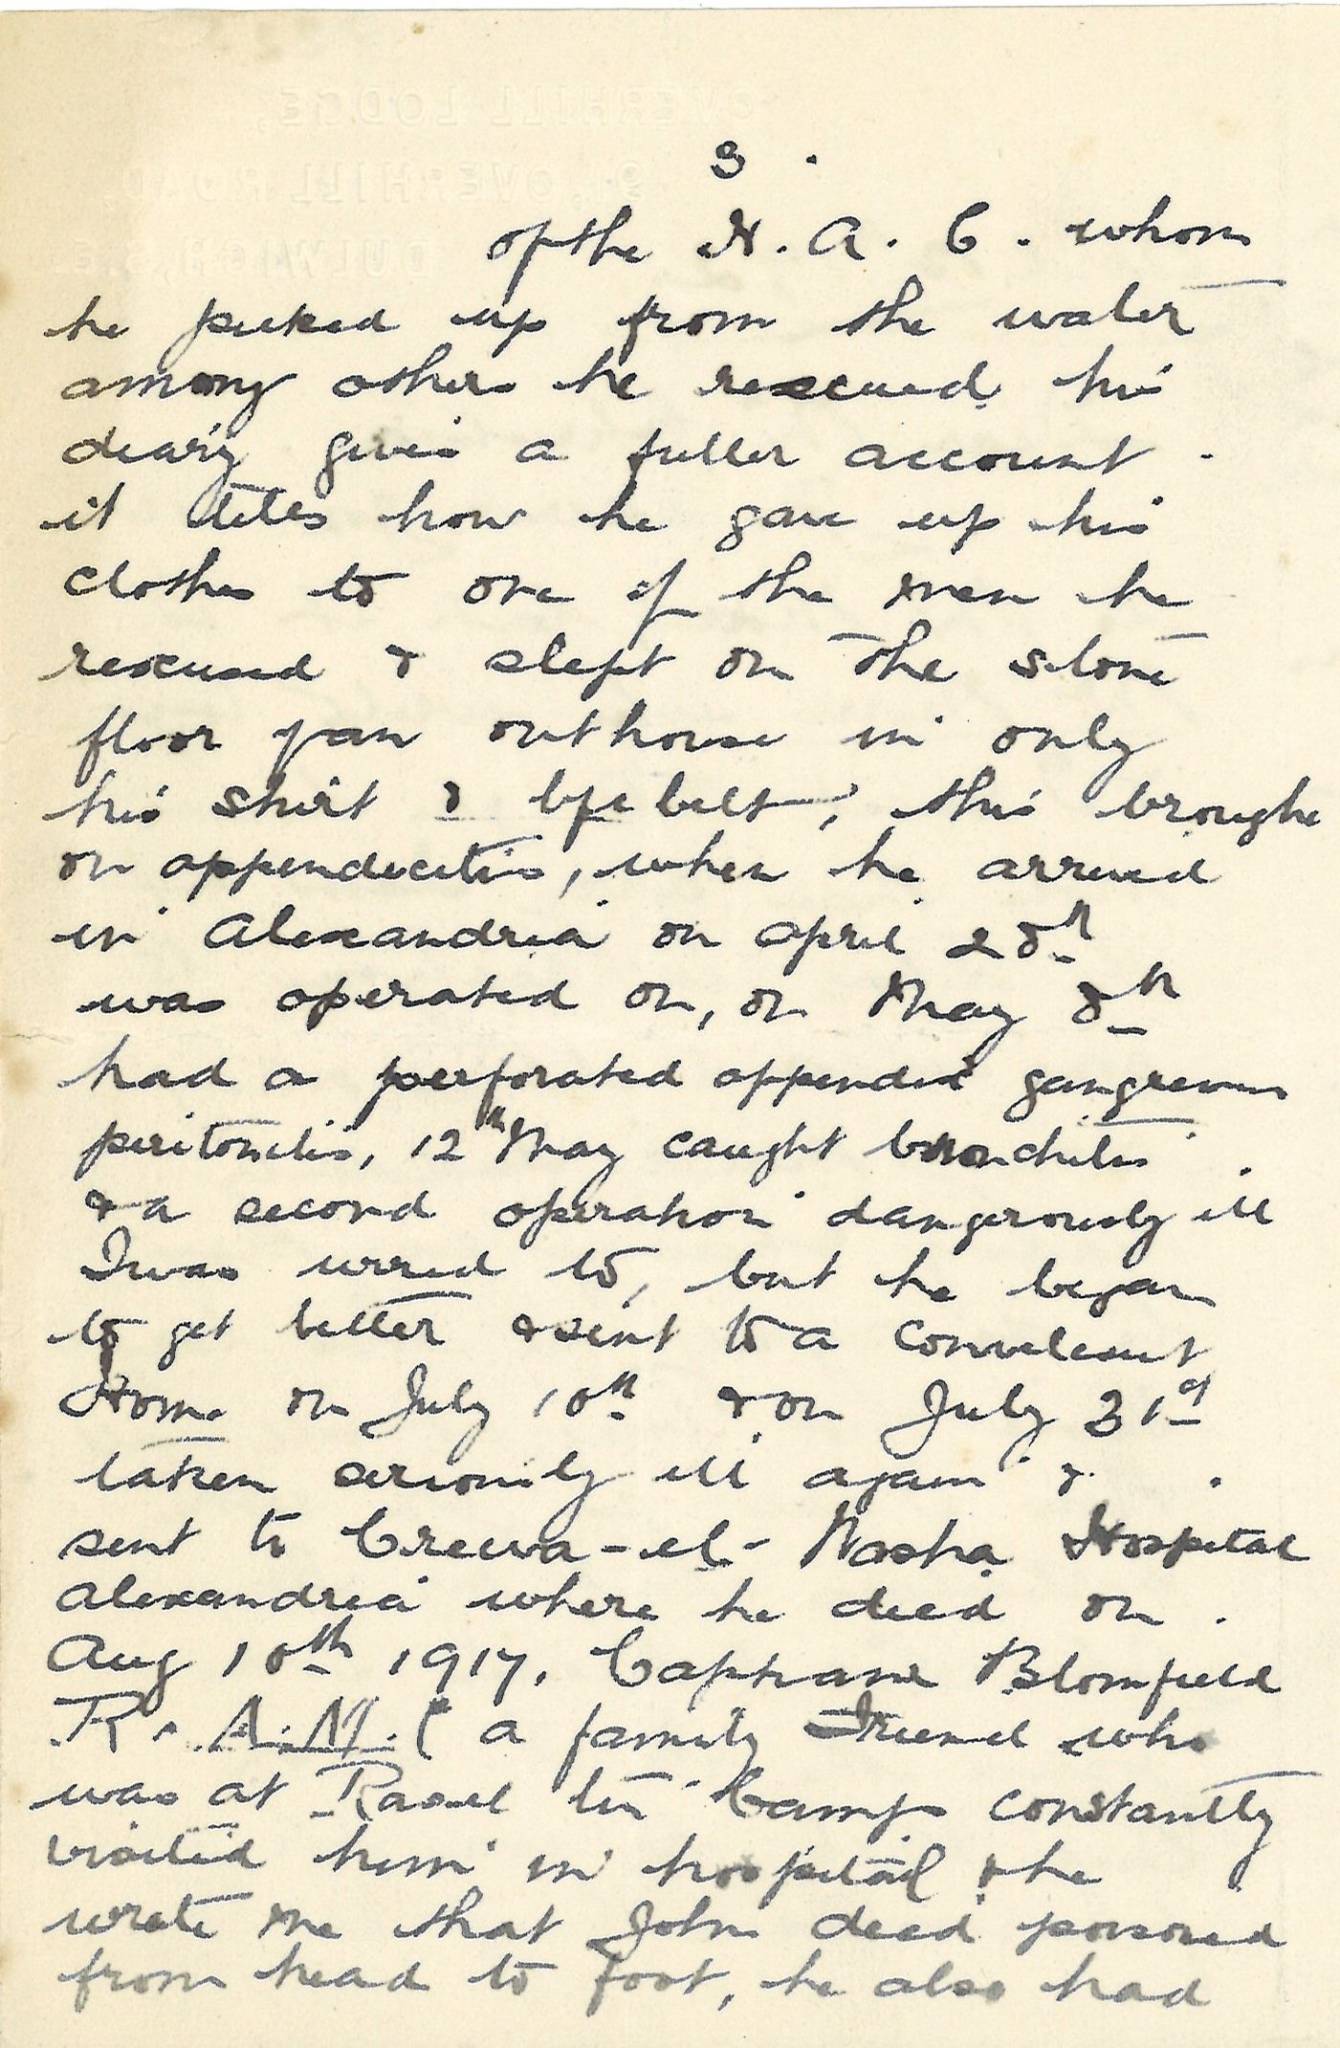 3.
of the H.A.C. whom
he picked up from the water
among others he rescued his
diary gives a fuller account.
it tells how he gave up his
clothes to one of the men he
rescued & slept on the stone
floor of an outhouse in only
his shirt & life belt, this brought
on appendicitis, when he arrived
in Alexandria on April 28th
was operated on, on May 8th
had a perforated appendix gangrenous
peritonitis, 12th May caught bronchitis
& a second operation dangerously ill
I was wired to, but he began
to get better & sent to a convalescent
Home on July 10th & on July 31st
taken seriously ill again &
sent to Crewa-el-Nasha Hospital
Alexandria where he died on.
Aug 10th 1917. Captain Blomfield
R.A.M.C a family Friend who
was at Rasel tin Camp constantly
visited him in hospital & he
wrote me that John died poisoned
from head to foot, he also had